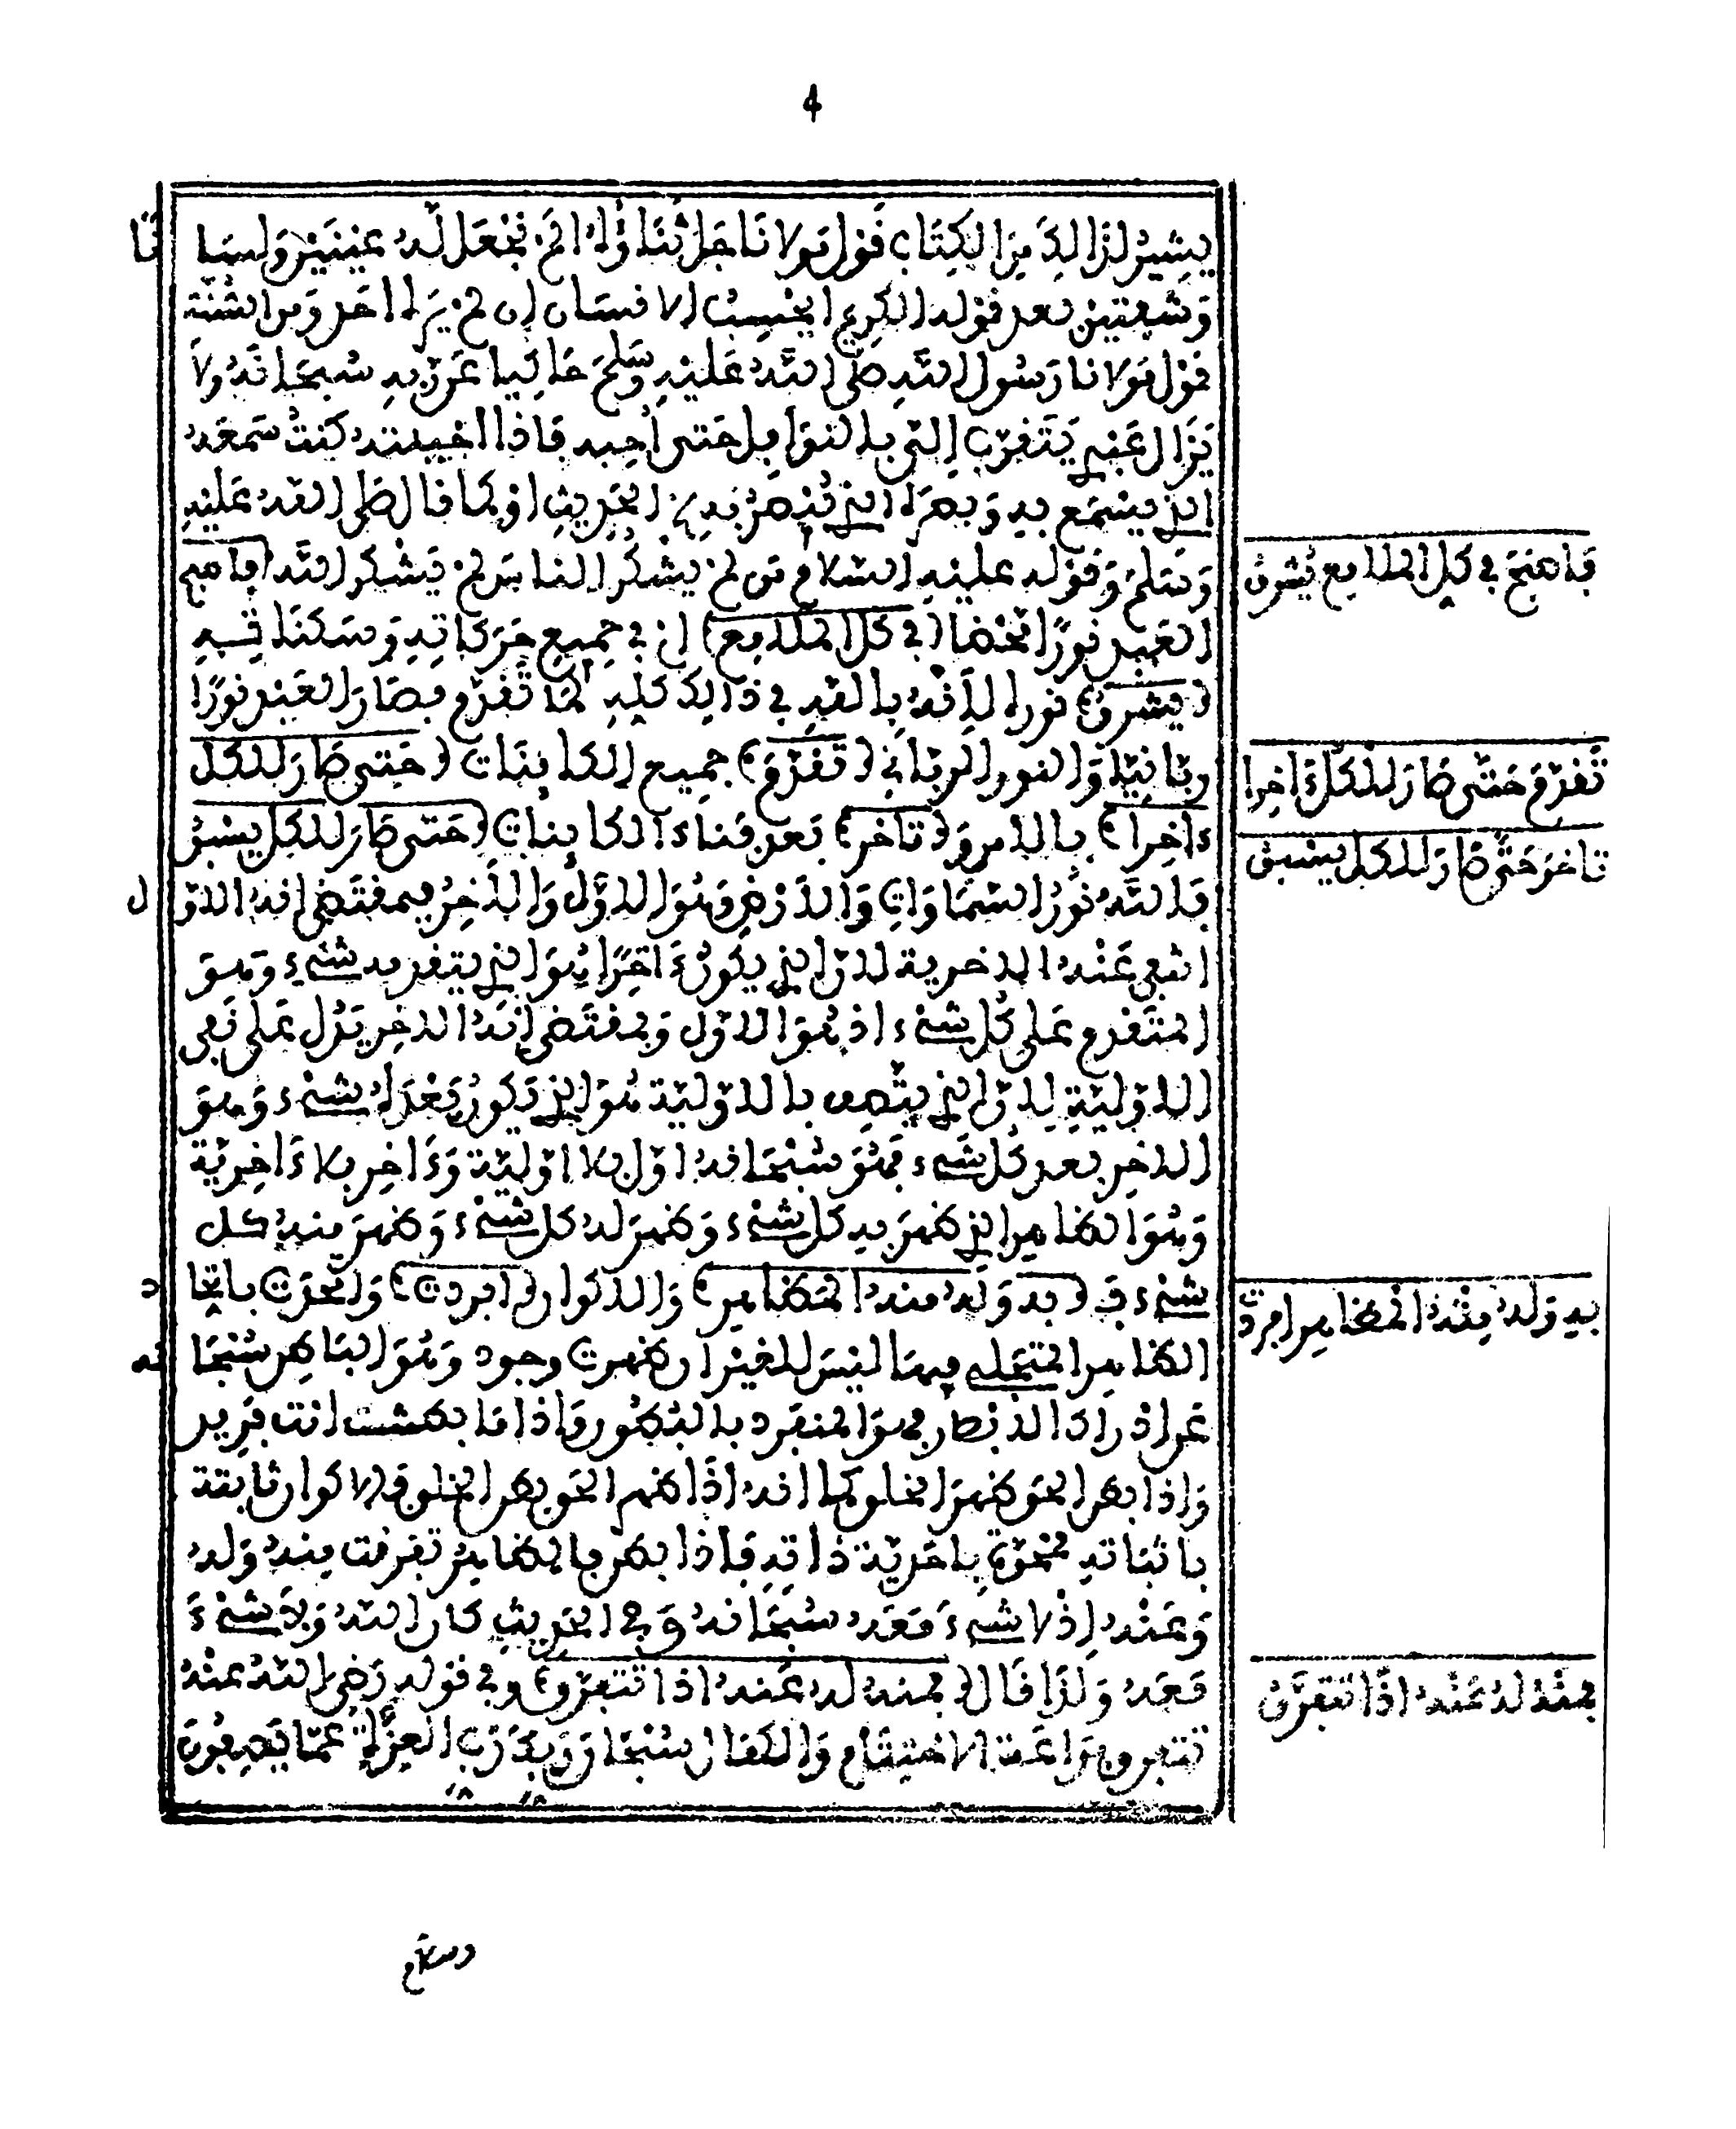 4
يشير لذالك من الكتاب قول مولانا جل ثناؤه الم نجعل له عينين ولسانا
وشفتين بعد قوله الكريم ايحسب الانسان ان لم يره احد ومن السنة
قول مولانا رسول الله صلى الله عليه وسلم حاكيا عن ربه سبحانه ولا
يزال عبدي يتقرب إلي بالنوافل حتى أحبه فاذا احببته كنت سمعه
الذي يسمع به وبصره الذي يبصر به الحديث او كما قال صلى الله عليه
وسلم وقوله عليه السلام من لم يشكر الناس لم يشكر الله (فاصبح
العبد نورا محضا (في كل المطالع) اي في جميع حركاته وسكناته
(يشرق) نورا لأنه بالله في ذالك كله كما تقدم فصار العبد نورا
ربانيا والنور الرباني (تقدم) جميع الكائنات (حتى صار للكل
ءاخرا) بالأمر و(تأخر) بعد فناء الكائنات (حتى صار للكل يسبق
فالله نور السماوات والأرض وهو الأول والأخر فبمقتضى انه الأول
انتفى عنه الاخرية لان الذي يكون ءاخرا هو الذي يتقدمه شيء وهو
المتقدم على كل شيء اذ هو الاول وبمقتضى انه الاخر يدل على نفي
الاولية لان الذي يتصف بالاولية هو الذي يكون بعده شيء وهو
الاخر بعد كل شيء فهو سبحانه اول بلا اولية وءاخر بلا ءاخرية
وهو الظاهر الذي ظهر به كل شيء وظهر له كل شيء وظهر منه كل
شيء فـ (به وله منه المظاهر) والاكوان (افردت) واتحدت باتحاد
الظاهر المتجلي فيها ليس للغير ان ظهرت وجود وهو الباطن سبحانه
عن ادراك الانظار فهو المنفرد بالبطون واذا ما بطشت انت فريد
واذا بطن الحق ظهر الخلق كما انه اذا ظهر الحق بطن الخلق والاكوان ثابتة
باثباته ممحوة باحدية ذاته فاذا بطن فالظاهر تفرقت منه وله
وعنه إذ لا شيء معه سبحانه وفي الحديث كان الله ولا شيء
معه ولذا قال (فمنه له عنه اذا تتفرق) وفي قوله رضي الله عنه
تتفرق براعة الاختتام والكمال سبحان ربك رب العزة عما يصفون
وسلام
فاصبح في كل المطالع يشرق
تقدم حتى صار للكل ءاخرا
تأخر حتى صار للكل يسبق
به وله منه المظاهر افردت
فمنه له عنه اذا تتفرق